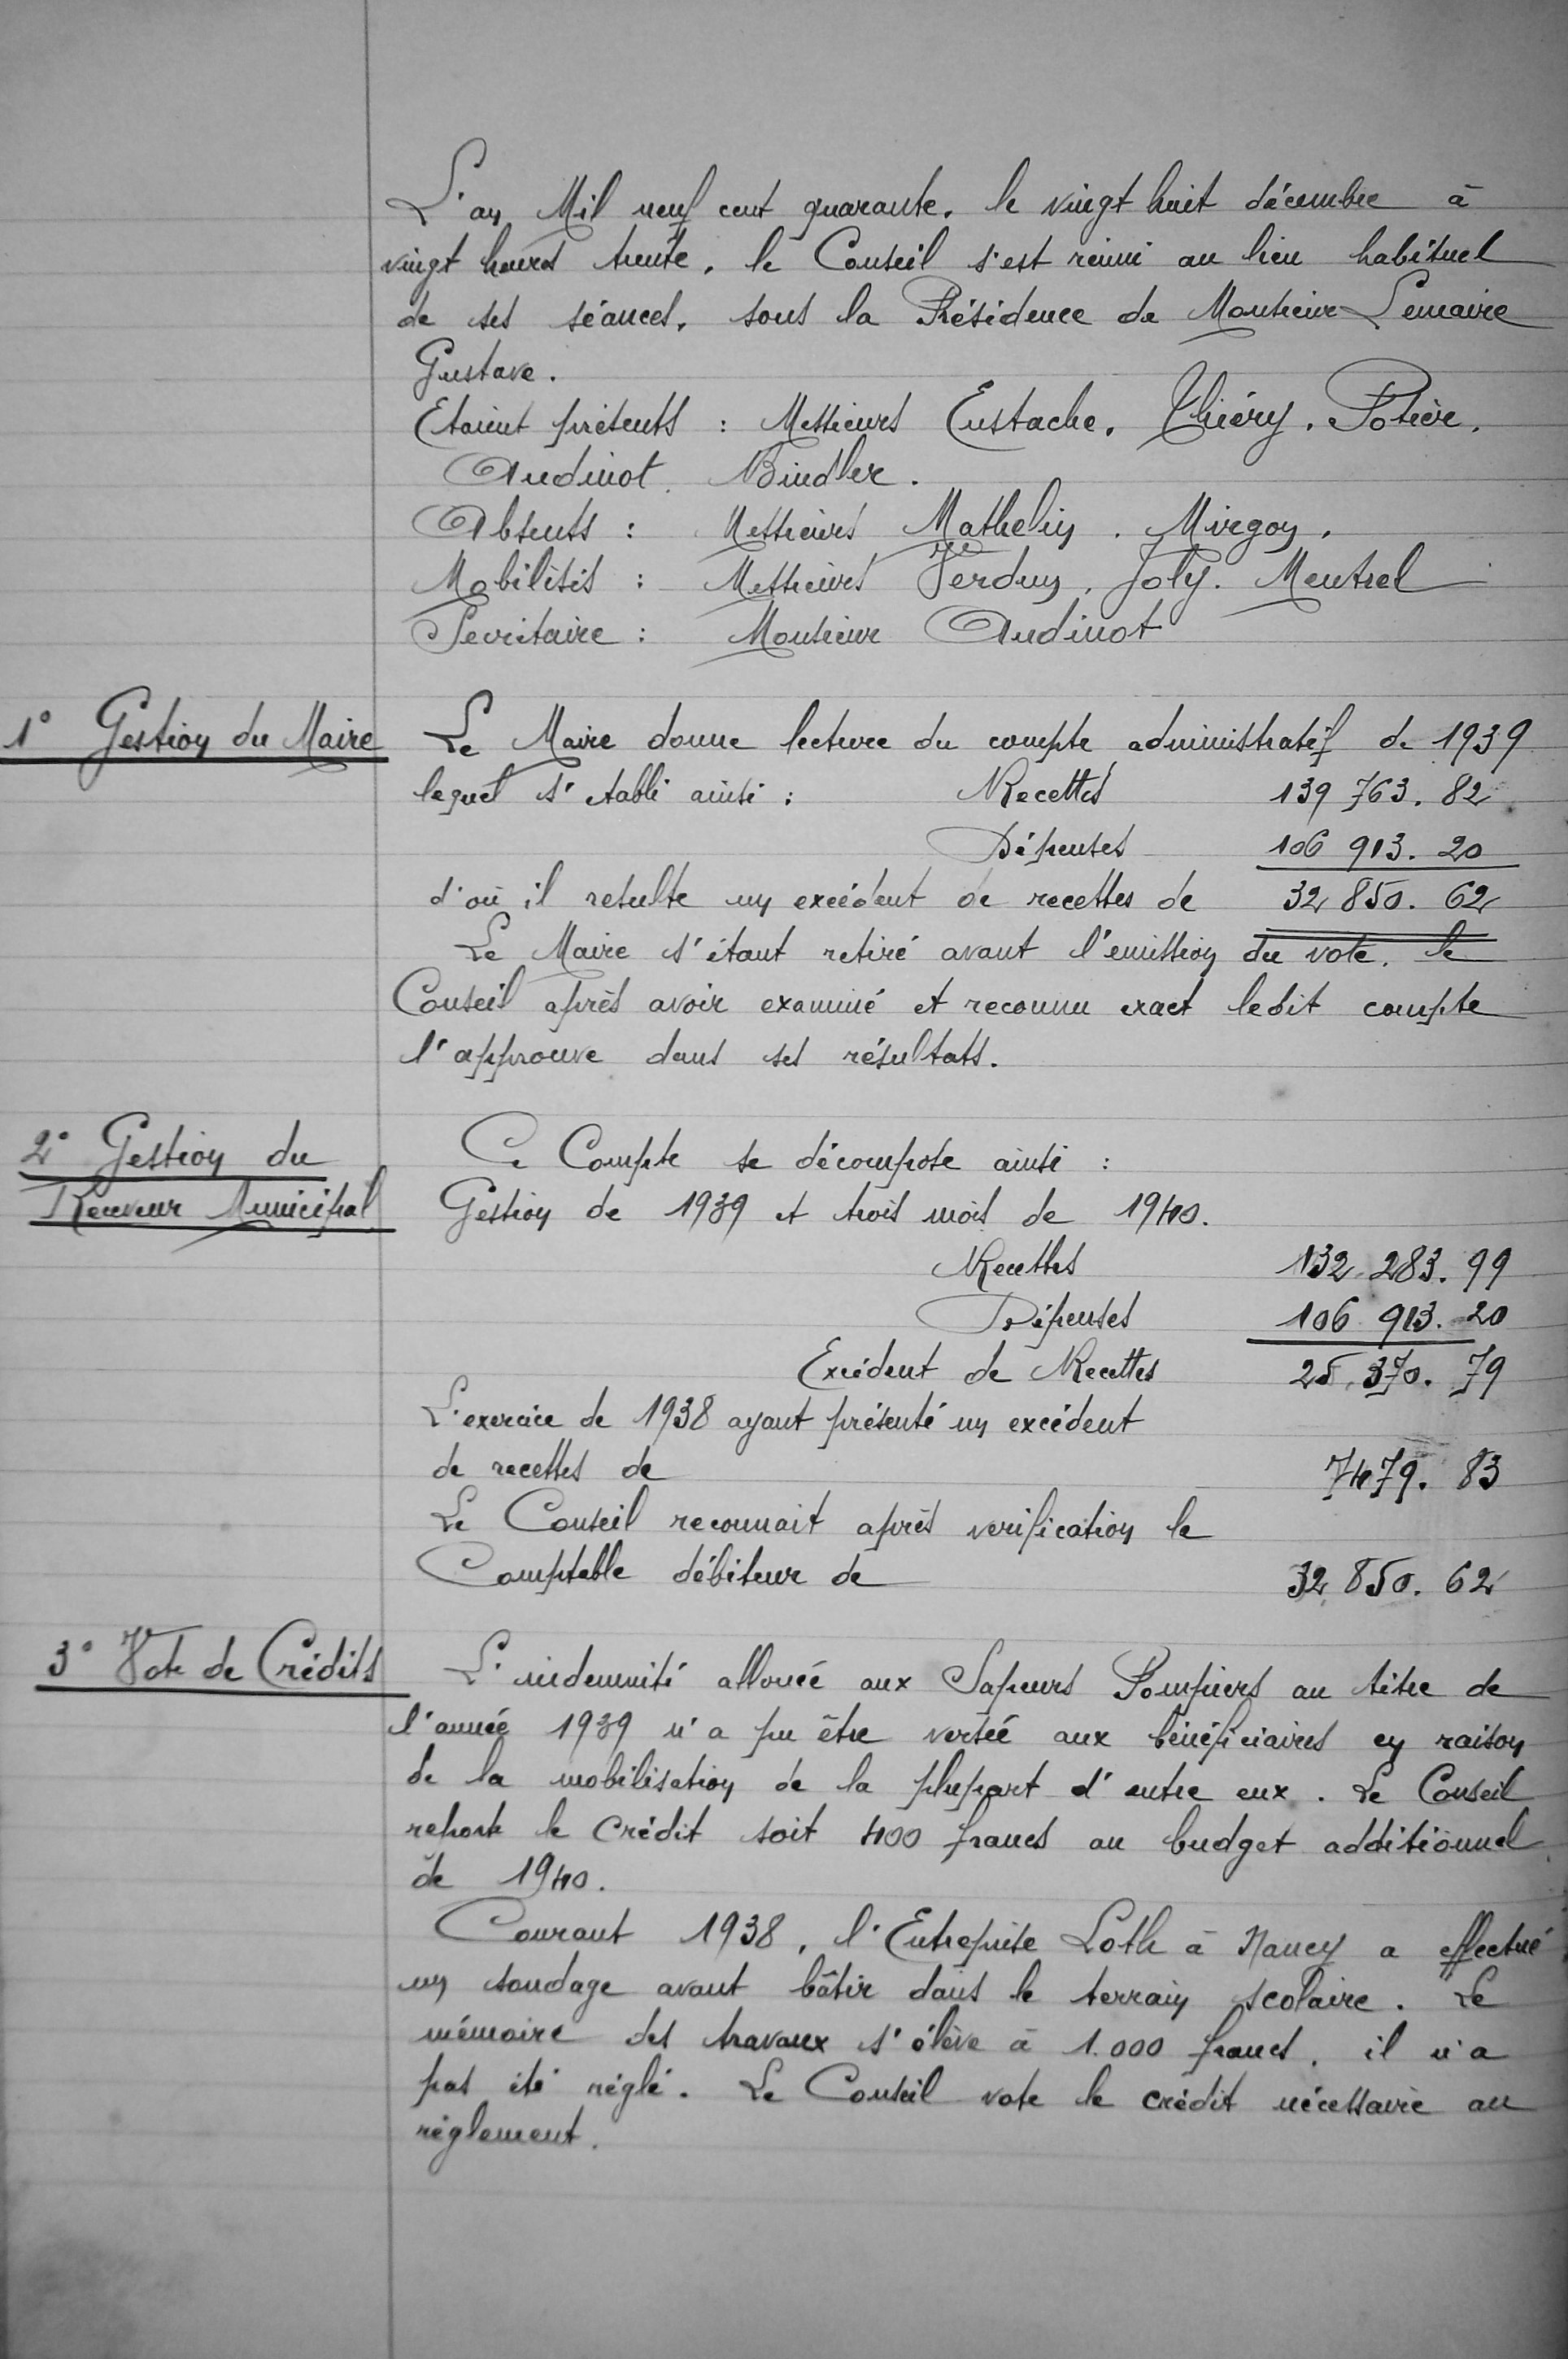 L'an Mil neuf cent quarante. le vingt huit décembre à
vingt heures trente, le Conseil s'est réuni au lieu habituel
de ses séances, sous la Présidence de Monsieur Lemaire
Gustave.
Etaient présents : Messieurs Eustache. Thiéry. Potier.
Audinot. Bindler.
Absents : Messieurs Mathelin. Mirgon.
Mobilisés : Messieurs Verdun, Joly. Mentrel
Secrétaire : Monsieur Audinot
1° Gestion du Maire
Le Maire donne lecture du compte administratif de 1939
lequel s'etabli ainsi : Recettes 139 763. 82
Dépenses 106 913. 20
d'où il resulte un excédent de recettes de 32 850. 62
Le Maire s'étant retiré avant l'émission du vote. le
Conseil après avoir examiné et reconnu exact ledit compte
l'approuve dans ses résultats.
2° Gestion du
Receveur Municipal
Ce Compte se décompose ainsi :
Gestion de 1939 et trois mois de 1940.
Recettes 132 283. 99
Dépenses 106 913. 20
Excédent de Recettes 25 370. 79
L'exercice de 1938 ayant présenté un excédent
de recettes de 7479. 83
Le Conseil reconnait après verification le
Comptable débiteur de 32 850. 62
3° Vote de Crédits
L'indemnité allouée aux Sapeurs Pompiers au titre de
l'année 1939 n'a pu être versée aux bénéficiaires en raison
de la mobilisation de la plupart d'entre eux. Le Conseil
reporte le crédit soit 400 francs au budget additionnel
de 1940.
Courant 1938, l'Entreprise Loth à Nancy a effectué
un sondage avant bâtir dans le terrain scolaire. Le
mémoire des travaux s'élève à 1.000 francs. il n'a
pas été réglé. Le Conseil vote le crédit nécessaire au
règlement.